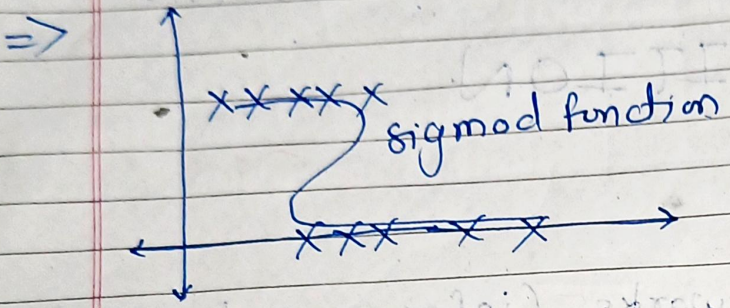 =>
sigmod function